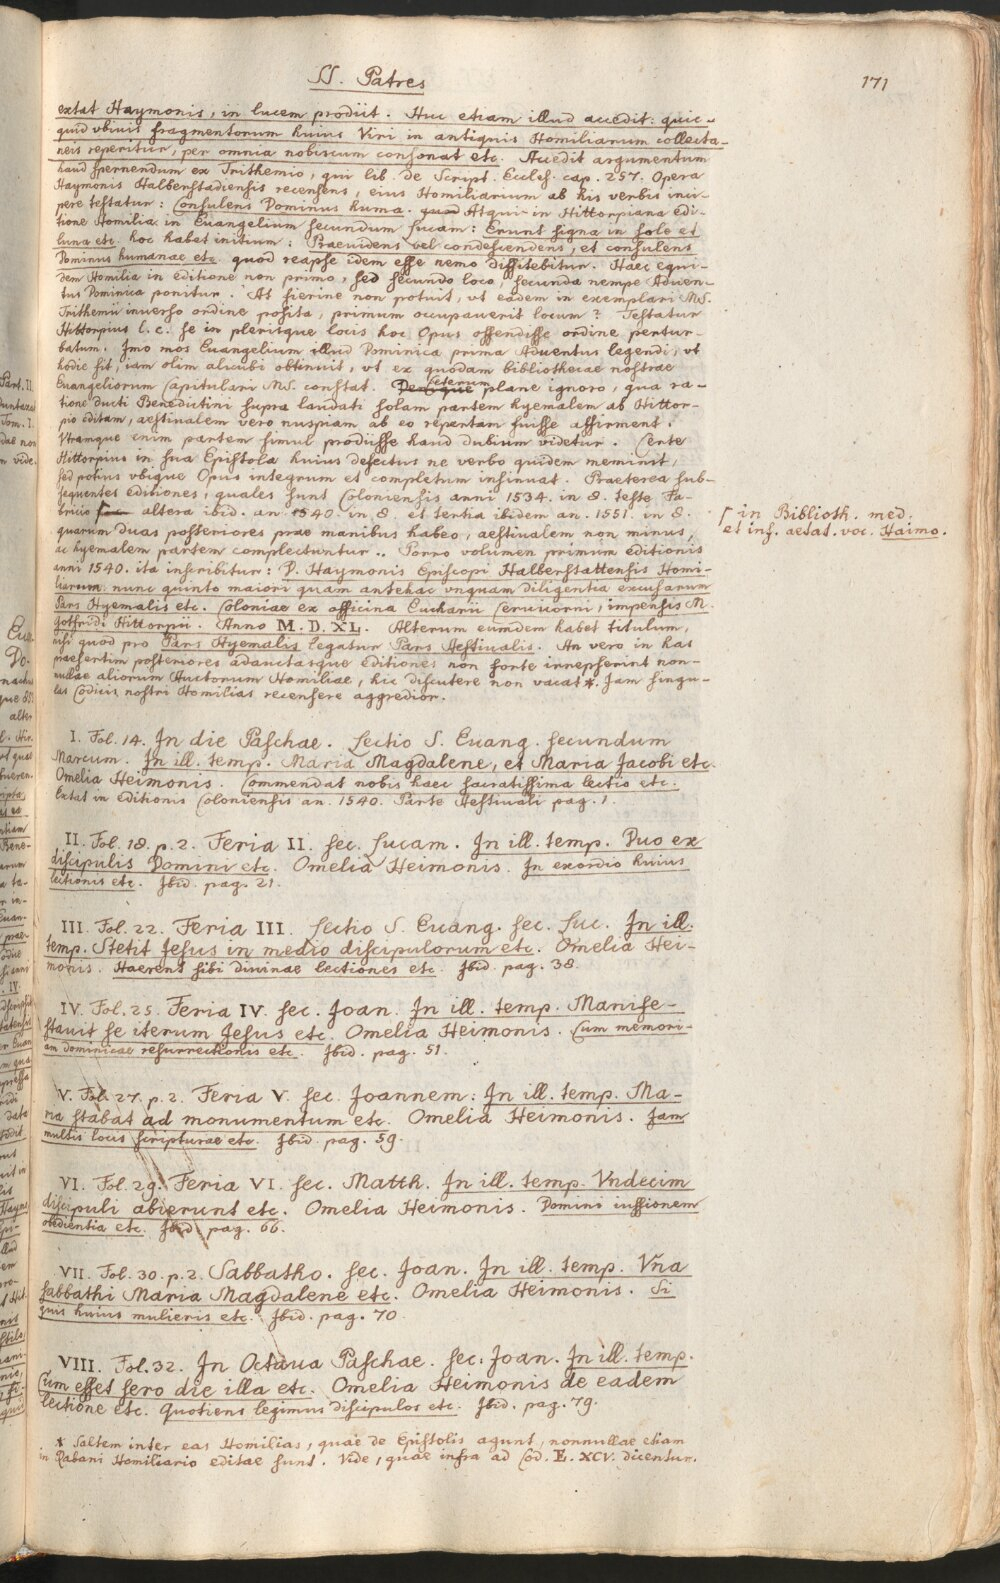 SS. Patres
171
extat Haymonis, in lucem prodiit. Huc etiam illud accedit: quic-
quid vbiuis fragmentorum huius Viri in antiquis Homiliarum collecta-
neis reperitur, per omnia nobiscum consonat etc. Accedit argumentum
haud spernendum ex Trithemio, qui lib. de Script. Eccles. cap. 257. Opera
Haymonis Halberstadiensis recensens, eius Homiliarium ab his verbis inci-
pere testatur: Consulens Dominus huma. quod Atqui in Hittorpiana edi-
tione Homilia in Euangelium secundum Lucam: Erunt signa in sole et
luna etc. hoc habet initium: Praeuidens vel condescendens, et consulens
Dominus humanae etc. quod reapse idem esse nemo diffitebitur. Haec equi-
dem Homilia in editione non primo, sed secundo loco, secunda nempe Aduen-
tus Dominica ponitur. At fierine non potuit, vt eadem in exemplari MS.
Trithemii inuerso ordine posita, primum occupauerit locum? Testatur
Hittorpius l. c. se in plerisque locis hoc Opus offendisse ordine pertur-
batum. Imo mos Euangelium illud Dominica prima Aduentus legendi, vt
hodie fit, iam olim alicubi obtinuit, vt ex quodam bibliothecae nostrae
Euangeliorum Capitulari MS. constat. Denique ceterum plane ignoro, qua ra-
tione ducti Benedictini supra laudati solam partem hyemalem ab Hittor-
pio editam, aestiualem vero nuspiam ab eo repertam fuisse affirment.
Vtramque enim partem simul prodiisse haud dubium videtur. Certe
Hittorpius in sua Epistola huius defectus ne verbo quidem meminit,
sed potius vbique Opus integrum et completum insinuat. Praeterea sub-
sequentes editiones, quales sunt Coloniensis anni 1534. in 8. teste Fa-
bricio altera ibid. an. 1540. in 8. et tertia ibidem an. 1551. in 8.
quarum duas posteriores prae manibus habeo, aestiualem non minus,
ac hyemalem partem complectuntur. Porro volumen primum editionis
anni 1540. ita inscribitur: D. Haymonis Episcopi Halberstattensis Homi-
liarum nunc quinto maiori quam antehac vnquam diligentia excusarum
Pars Hyemalis etc. Coloniae ex officina Eucharii Ceruicorni, impensis M.
Gotfridi Hittorpii. Anno M.D.XL. Alterum eumdem habet titulum,
nisi quod pro Pars Hyemalis legatur Pars Aestiualis. An vero in has
praesertim posteriores adauctasque editiones non forte irrepserint non-
nullae aliorum Auctorum Homiliae, hic discutere non vacat *. Jam singu-
las Codicis nostri Homilias recensere aggredior.
[ in Biblioth. med.
et inf. aetat. voc. Haimo.
I. Fol. 14. In die Paschae. Lectio S. Euang. secundum
Marcum. In ill. temp. Maria Magdalene, et Maria Jacobi etc.
Omelia Heimonis. Commendat nobis haec sacratissima lectio etc.
Extat in Editionis Coloniensis an. 1540. Parte Aestiuali pag. 1.
II. Fol. 18. p. 2. Feria II. sec. Lucam. In ill. temp. Duo ex
discipulis Domini etc. Omelia Heimonis. In exordio huius
lectionis etc. Ibid. pag. 21.
III. Fol. 22. Feria III. Lectio S. Euang. sec. Luc. In ill.
temp. Stetit Jesus in medio discipulorum etc. Omelia Hei-
monis. Haerent sibi diuinae lectiones etc. Ibid. pag. 38.
IV. Fol. 25. Feria IV. sec. Joan. In ill. temp. Manife-
stauit se iterum Jesus etc. Omelia Heimonis. Cum memori-
am dominicae resurrectionis etc. Ibid. pag. 51.
V. Fol. 27. p. 2. Feria V. sec. Joannem: In ill. temp. Ma-
ria stabat ad monumentum etc. Omelia Heimonis. Jam
multis locis scripturae etc. Ibid. pag. 59.
VI. Fol. 29. Feria VI. sec. Matth. In ill. temp. Vndecim
discipuli abierunt etc. Omelia Heimonis. Domini iussionem
obedientia etc. Ibid. pag. 66.
VII. Fol. 30. p. 2. Sabbatho. sec. Joan. In ill. temp. Vna
sabbathi Maria Magdalene etc. Omelia Heimonis. Si
quis huius mulieris etc. Ibid. pag. 70.
VIII. Fol. 32. In Octaua Paschae. sec. Joan. In ill. temp.
Cum esset sero die illa etc. Omelia Heimonis de eadem
lectione etc. Quotiens legimus discipulos etc. Ibid. pag. 79.
* Saltem inter eas Homilias, quae de Epistolis agunt, nonnullae etiam
in Rabani Homiliario editae sunt. Vide, quae infra ad Cod. L. XCV. dicentur.